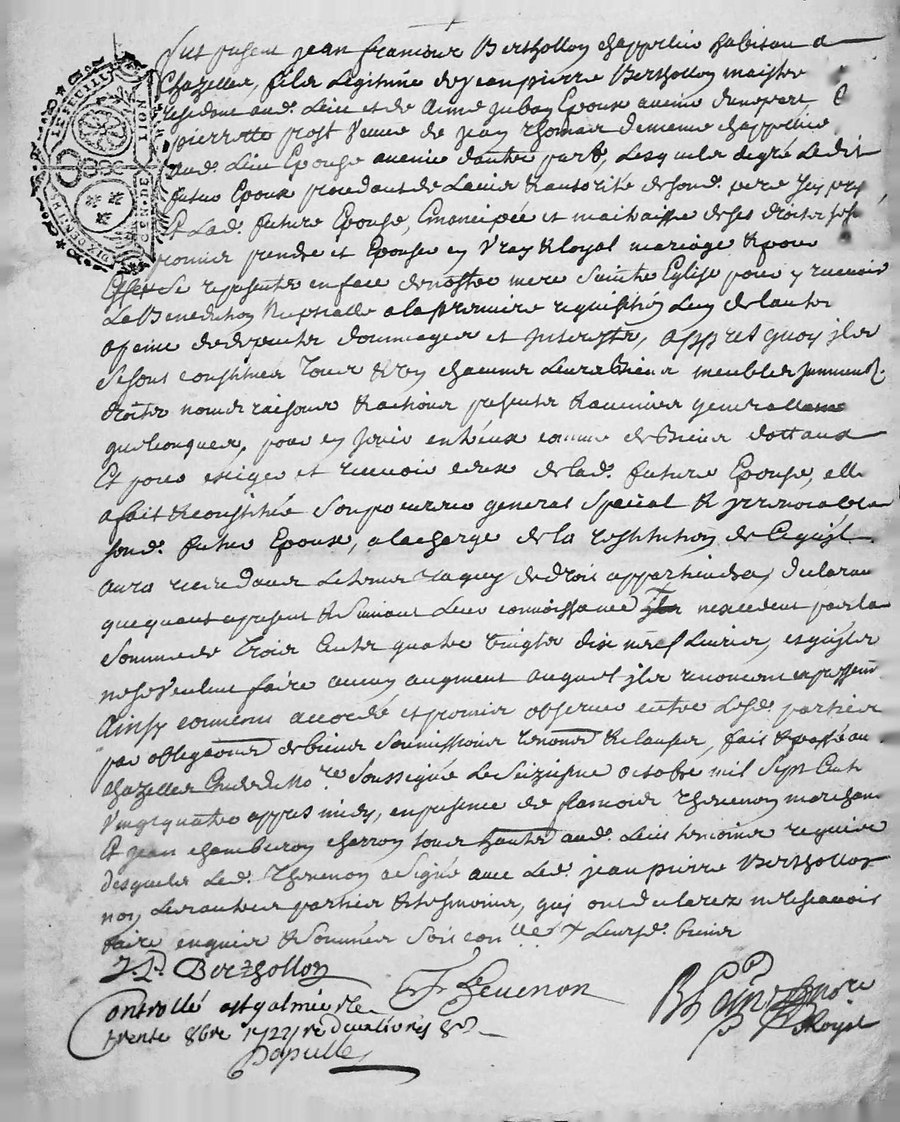 LE FEUILLET
GEN. DE LION
DIX CENTIMES
fut present jean francois Berthollon chappellier habitan a
Chazelles, fils legitime de jean pierre Berthollon maistre
residant aud. Lieu et de Aimé jubay Epoux avenir d'une part, &
pierrette prost veuve de jean thomas dememe chappellier
aud. Lieu Epouse avenir dautre part, Lesquels de gré Ledit
futur Epoux procedant de Lavis & autorité de sond. pere Icy pnt
Et Lad. future Epouse, Emancipée et maitraisse de ses droits ont
promis prendre et Epouser en vray & loyal mariage & pour
Effet se representer en face de nostre mere Sainte Eglise pour y recevoir
La Benediction Nuptialle a la premiere requisition Lun de lautre
a peine de despents dommages et Interests, appres quoy ils
se sont constitues tous & un chacuns Leurs Biens meubles Immeub.
droits noms raisons & actions presents & avenirs generallement
quelconques, pour en jouir entreux comme de Biens dottaux
Et pour exiger et recevoir ceux de lad. future Epouse, elle
a fait & constitué son procureur general special & irrevocable
sond. futur Epoux, a la charge de la restitution de ce quil
aura receu dans Le temps ta quy de droit appartiendra, declarant
que quant a present & suivant Leur connoissance Ils nexcedent pas la
somme de trois Cents quatre vingts dix neuf Livres, et quils
ne veulent faire aucun augment auquel ils renoncent expressem.
Ainsy convenu accordé et promis observer entre Lesd. parties
par obligations de biens soumissions renonc & clauses, fait & passé aud.
Chazelles Etude du No.re soussigné Le seizieme octobre mil sept Cents
vingt quatre appres midy, en presence de francois Thevenon marchand
Et jean chamberon charron tous habts aud. Lieu temoins requis
desquels Led. Thevenon a signé avec Led. jean pierre Berthollon
non Les autres parties & tesmoins, quy ont declarez ne scavoir
faire enquis & sommés
J. P. Berthollon
F Thevenon
Controllé a st galmier le
trente 8bre
royal